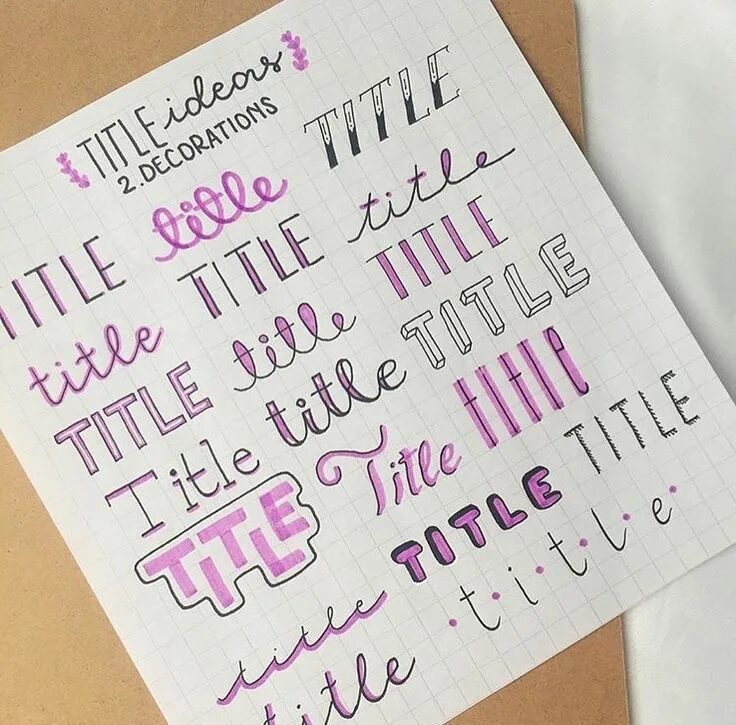 TITLE ideas
2.DECORATIONS
TITLE title TITLE
title TITLE title
TITLE title TITLE
Title title TITLE
TITLE Title title
title TITLE TITLE
title ·t·i·t·l·e·